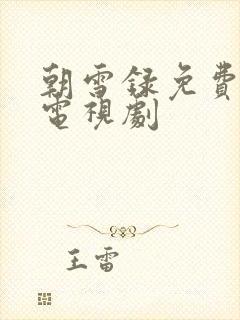 朝雪録免費
電視劇
王雷